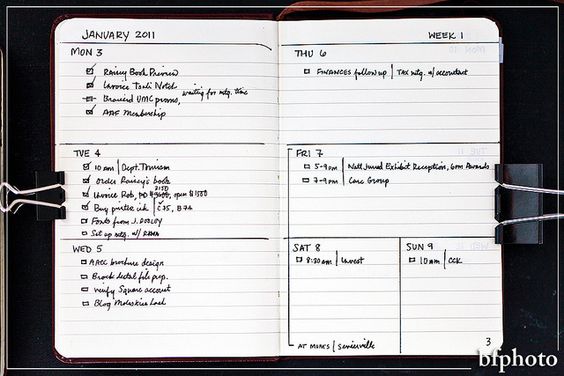 JANUARY 2011
WEEK 1
MON 3
Rainy Book Preview
Invoice Tsali Notch
waiting for mtg. time
AAF Membership
TUE 4
10 am | Dept. Tourism
Order Rainey's book
2150
Invoice Rob, open $1500
Buy printer ink
Fonts from J.
Set up mtg. w/
WED 5
AAEC brochure design
Brock dental file prep.
verify Square account
Blog Moleskine hack
THU 6
FINANCES follow up | TAX mtg. w/ accountant
FRI 7
5-9pm | Natl. Juried Exhibit Reception, 6pm Awards
7-9pm | Care Group
SAT 8
8:30am | Invest
AT MIKE'S | Sevierville
SUN 9
10am | CCK
3
bfphoto